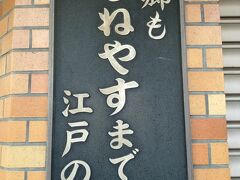 郷も
ねやすまで
江戸の